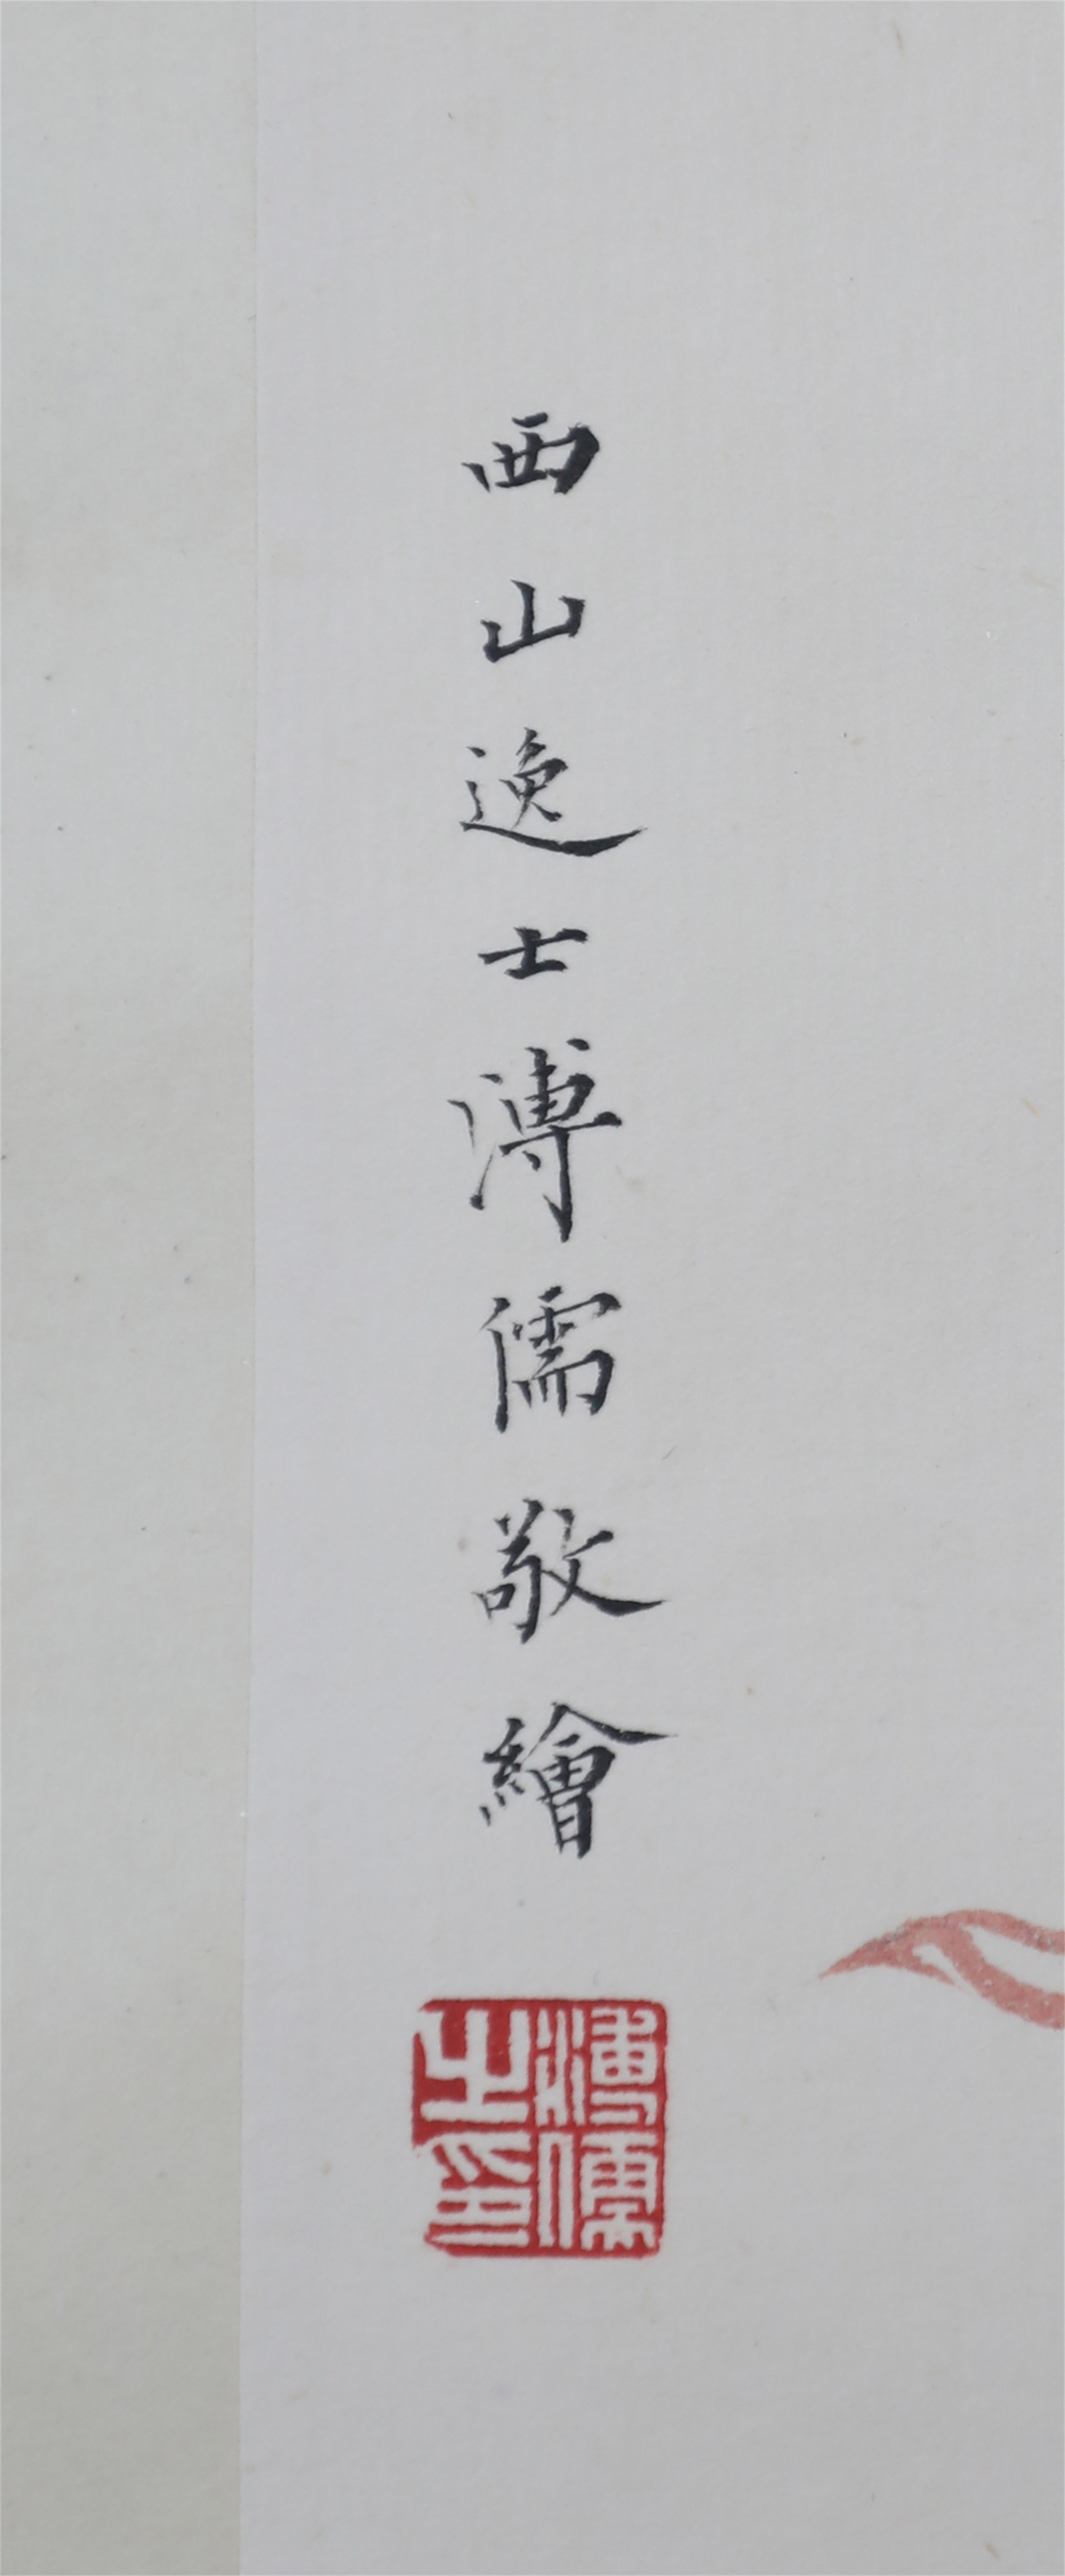 西山逸士溥儒敬繪
溥儒之印